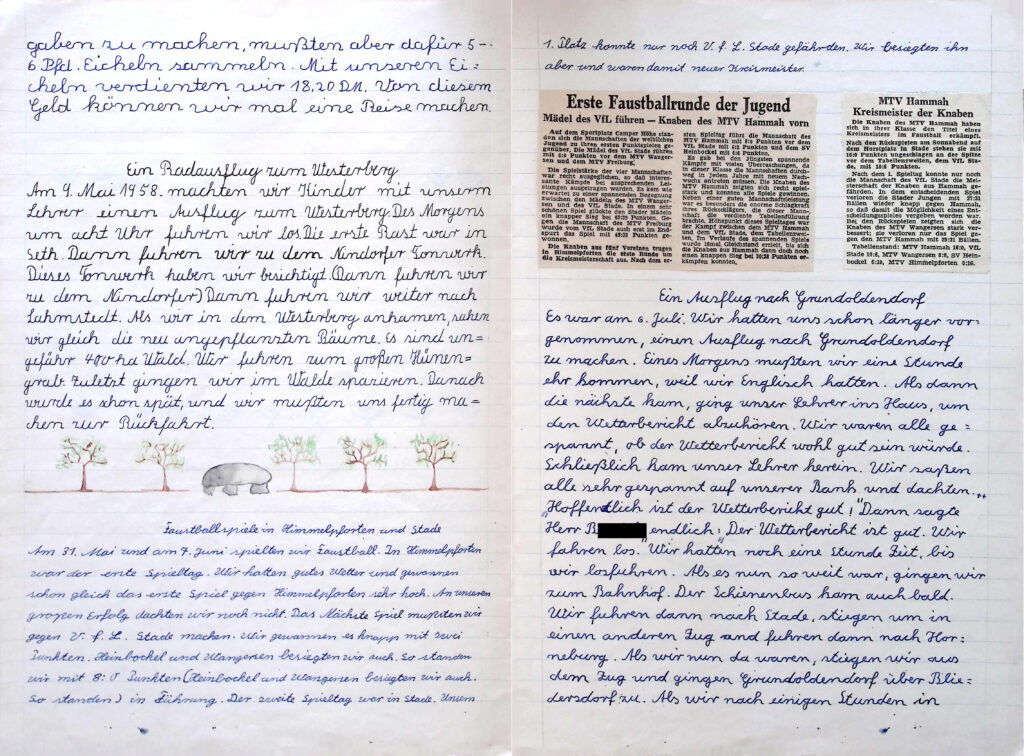 gaben zu machen, mußten aber dafür 5-
6 Pfd. Eicheln sammeln. Mit unseren Ei=
cheln verdienten wir 18,20 DM. Von diesem
Geld können wir mal eine Reise machen.
Ein Radausflug zum Westerberg
Am 9. Mai 1958. machten wir Kinder mit unserm
Lehrer einen Ausflug zum Westerberg. Des Morgens
um acht Uhr fuhren wir los. Die erste Rast war in
Seth. Dann fuhren wir zu dem Nindorfer Tonwerk.
Dieses Tonwerk haben wir besichtigt. (Dann fuhren wir
zu dem Nindorfer) Dann fuhren wir weiter nach
Lahmstedt. Als wir in dem Westerberg ankamen, sahen
wir gleich die neu angepflanzten Bäume. Es sind un=
gefähr 400 ha Wald. Wir fuhren zum großen Hünen=
grab. Zuletzt gingen wir im Walde spazieren. Danach
wurde es schon spät, und wir mußten uns fertig ma=
chen zur Rückfahrt.
Faustballspiele in Himmelpforten und Stade
Am 31. Mai und am 7. Juni spielten wir Faustball. In Himmelpforten
war der erste Spieltag. Wir hatten gutes Wetter und gewannen
schon gleich das erste Spiel gegen Himmelpforten sehr hoch. An unseren
großen Erfolg dachten wir noch nicht. Das Nächste Spiel mußten wir
gegen V. f. L. Stade machen. Wir gewannen es knapp mit zwei
Punkten. Heinbockel und Wangersen besiegten wir auch. So standen
wir mit 8:0 Punkten (Heinbockel und Wangersen besiegten wir auch.
So standen) in Führung. Der zweite Spieltag war in Stade. Unsern
1. Platz konnte nur noch V. f. L. Stade gefährden. Wir besiegten ihn
aber und waren damit neuer Kreismeister.
Erste Faustballrunde der Jugend
Mädel des VfL führen — Knaben des MTV Hammah vorn
Auf dem Sportplatz Camper Höhe stan-
den sich die Mannschaften der weiblichen
Jugend zu ihren ersten Punktspielen ge-
genüber. Die Mädel des VfL Stade führen
mit 4:0 Punkten vor dem MTV Wanger-
sen und dem MTV Freiburg.
Die Spielstärke der vier Mannschaften
war recht ausgeglichen, so daß interes-
sante Kämpfe bei ansprechenden Lei-
stungen ausgetragen wurden. Es kam wie
erwartet zu einer spannenden Begegnung
zwischen den Mädeln des MTV Wanger-
sen und des VfL Stade. In einem sehr
schönen Spiel glückte den Stader Mädeln
ein knapper Sieg bei Punkten. Ge-
gen die Mannschaft des MTV Freiburg
wurde vom VfL Stade auch erst im End-
spurt das Spiel mit Punkten ge-
wonnen.
Die Knaben aus fünf Vereinen trugen
in Himmelpforten die erste Runde um
die Kreismeisterschaft aus. Nach dem er-
sten Spieltag führt die Mannschaft des
MTV Hammah mit 8:0 Punkten vor dem
VfL Stade mit 6:2 Punkten und dem SV
Heinbockel mit 4:4 Punkten.
Es gab bei den Jüngsten spannende
Kämpfe mit vielen Überraschungen, da
in dieser Klasse die Mannschaften durch-
weg in jedem Jahre mit neuem Nach-
wuchs antreten müssen. Die Knaben des
MTV Hammah zeigten sich recht spiel-
stark und konnten alle Spiele gewinnen.
Neben einer guten Mannschaftsleistung
war es besonders die enorme Schlagkraft
des Rückschlägers, die dieser Mann-
schaft die verdiente Tabellenführung
brachte. Höhepunkt dieses Spieltages war
der Kampf zwischen dem MTV Hammah
und dem VfL Stade, dem Tabellenzwei-
ten. Im Verlaufe des spannenden Spieles
wurde 16mal Gleichstand erzielt, bis sich
die Knaben aus Hammah dann doch noch
einen knappen Sieg bei 30:28 Punkten er-
kämpfen konnten.
MTV Hammah
Kreismeister der Knaben
Die Knaben des MTV Hammah haben
sich in ihrer Klasse den Titel eines
Kreismeisters im Faustball erkämpft.
Nach den Rückspielen am Sonnabend auf
dem Horstplatz in Stade stehen sie mit
16:0 Punkten ungeschlagen an der Spitze
vor dem Tabellenzweiten, dem VfL Sta-
de, mit 10:6 Punkten.
Nach dem 1. Spieltag konnte nur noch
die Mannschaft des VfL Stade die Mei-
sterschaft der Knaben aus Hammah ge-
fährden. In dem entscheidenden Spiel
verloren die Stader Jungen mit 27:31
Bällen wieder knapp gegen Hammah,
so daß damit die Möglichkeit eines Ent-
scheidungsspieles vergeben worden war.
Bei den Rückspielen zeigten sich die
Knaben des MTV Wangersen stark ver-
bessert; sie verloren nur das Spiel ge-
gen den MTV Hammah mit 19:21 Bällen.
Tabellenstand: MTV Hammah 16:0, VfL
Stade 10:6, MTV Wangersen 8:8, SV Hein-
bockel 6:10, MTV Himmelpforten 0:16.
Ein Ausflug nach Grundoldendorf
Es war am 6. Juli. Wir hatten uns schon länger vor=
genommen, einen Ausflug nach Grundoldendorf
zu machen. Eines Morgens mußten wir eine Stunde
ehr kommen, weil wir Englisch hatten. Als dann
die nächste kam, ging unser Lehrer ins Haus, um
den Wetterbericht abzuhören. Wir waren alle ge=
spannt, ob der Wetterbericht wohl gut sein würde.
Schließlich kam unser Lehrer herein. Wir saßen
alle sehr gespannt auf unserer Bank und dachten. „
"Hoffendlich ist der Wetterbericht gut!" Dann sagte
Herr B endlich: „Der Wetterbericht ist gut. Wir
fahren los." Wir hatten noch eine Stunde Zeit, bis
wir losfuhren. Als es nun so weit war, gingen wir
zum Bahnhof. Der Schienenbus kam auch bald.
Wir fuhren dann nach Stade, stiegen um in
einen anderen Zug und fuhren dann nach Hor=
neburg. Als wir nun da waren, stiegen wir aus
dem Zug und gingen Grundoldendorf über Blie=
dersdorf zu. Als wir nach einigen Stunden in